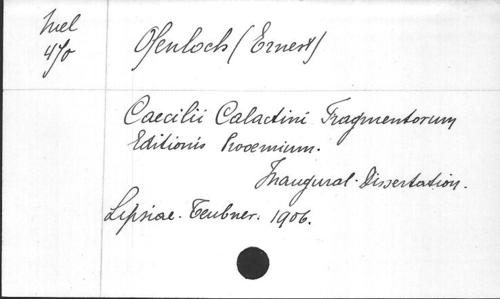 Mel
470
Ofenloch (Ernest)
Caecilii Calactini Fragmentorum
Editionis Prooemium.
Inaugural-Dissertation.
Lipsiae. Teubner. 1906.